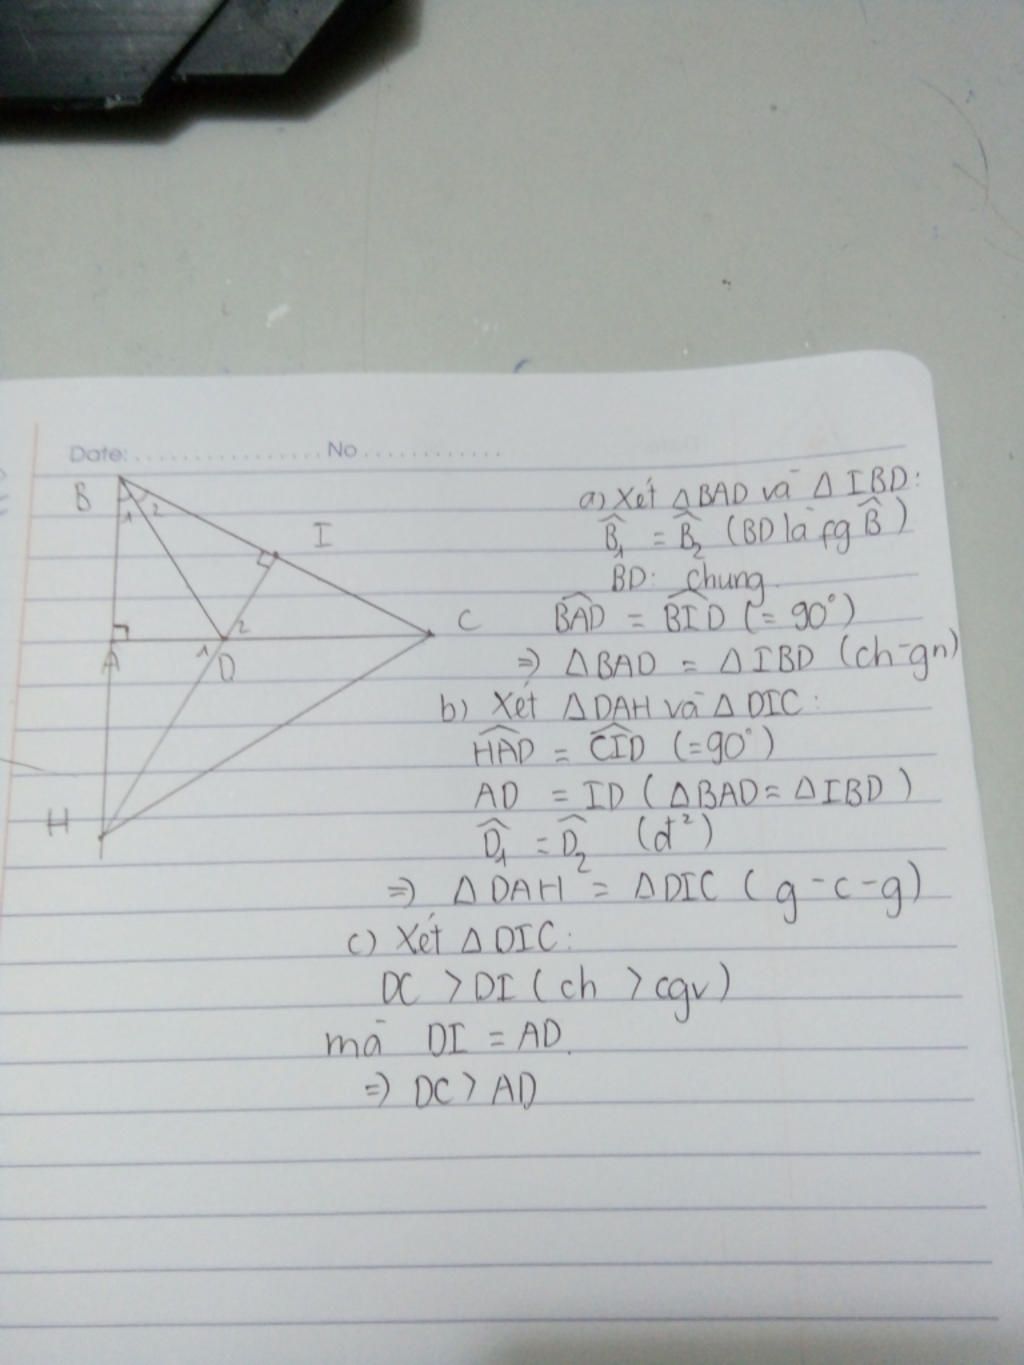 Date: ................ No ............
B 1 2
I
C
A 1 D 2
H
a) Xét △BAD và △IBD:
B̂₁ = B̂₂ (BD là fg B̂)
BD: chung.
BAD̂ = BID̂ (= 90°)
=> △BAD = △IBD (ch-gn)
b) Xét △DAH và △DIC:
HAD̂ = CID̂ (=90°)
AD = ID (△BAD = △IBD)
D̂₁ = D̂₂ (đ²)
=> △DAH = △DIC (g-c-g)
c) Xét △DIC:
DC > DI (ch > cgv)
mà DI = AD.
=> DC > AD